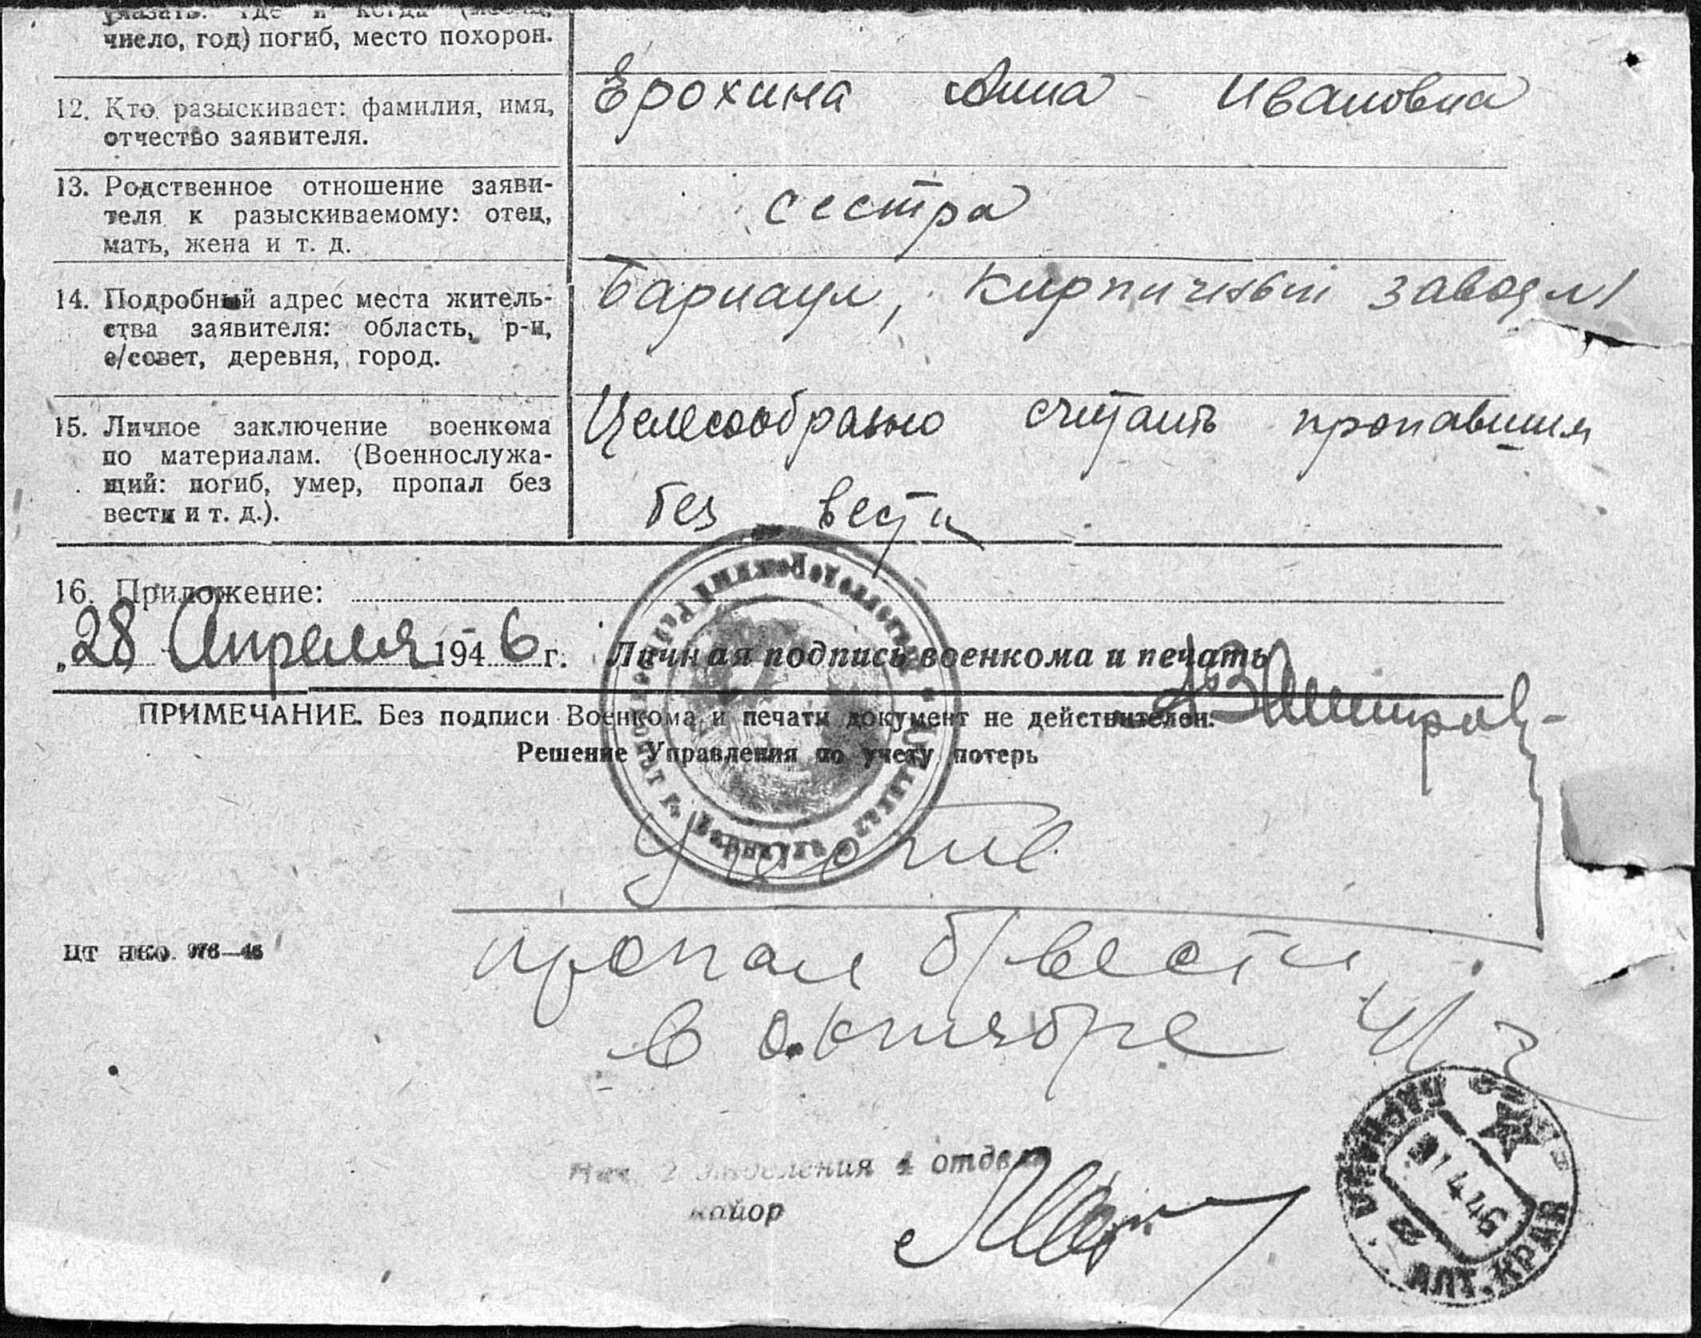 указать: где и когда (месяц,
число, год) погиб, место похорон.
12. Кто разыскивает: фамилия, имя,
отчество заявителя.
Ерохина Анна Ивановна
13. Родственное отношение заяви-
теля к разыскиваемому: отец,
мать, жена и т. д.
сестра
14. Подробный адрес места житель-
ства заявителя: область, р-н,
с/совет, деревня, город.
Барнаул, Кирпичный завод №1
15. Личное заключение военкома
по материалам. (Военнослужа-
щий: погиб, умер, пропал без
вести и т. д.).
Целесообразно считать пропавшим
без вести
16. Приложение:
„28 Апреля 1946 г. Личная подпись военкома и печать
ПРИМЕЧАНИЕ. Без подписи Военкома и печати документ не действителен.
Решение Управления по учету потерь
Учесть
пропал б/вести
в октябре 41 г
ЦТ НКО 976—46
Нач. 2 отделения 4 отдела
майор
БАРНАУЛ
1 4 46
АЛТ. КРАЯ